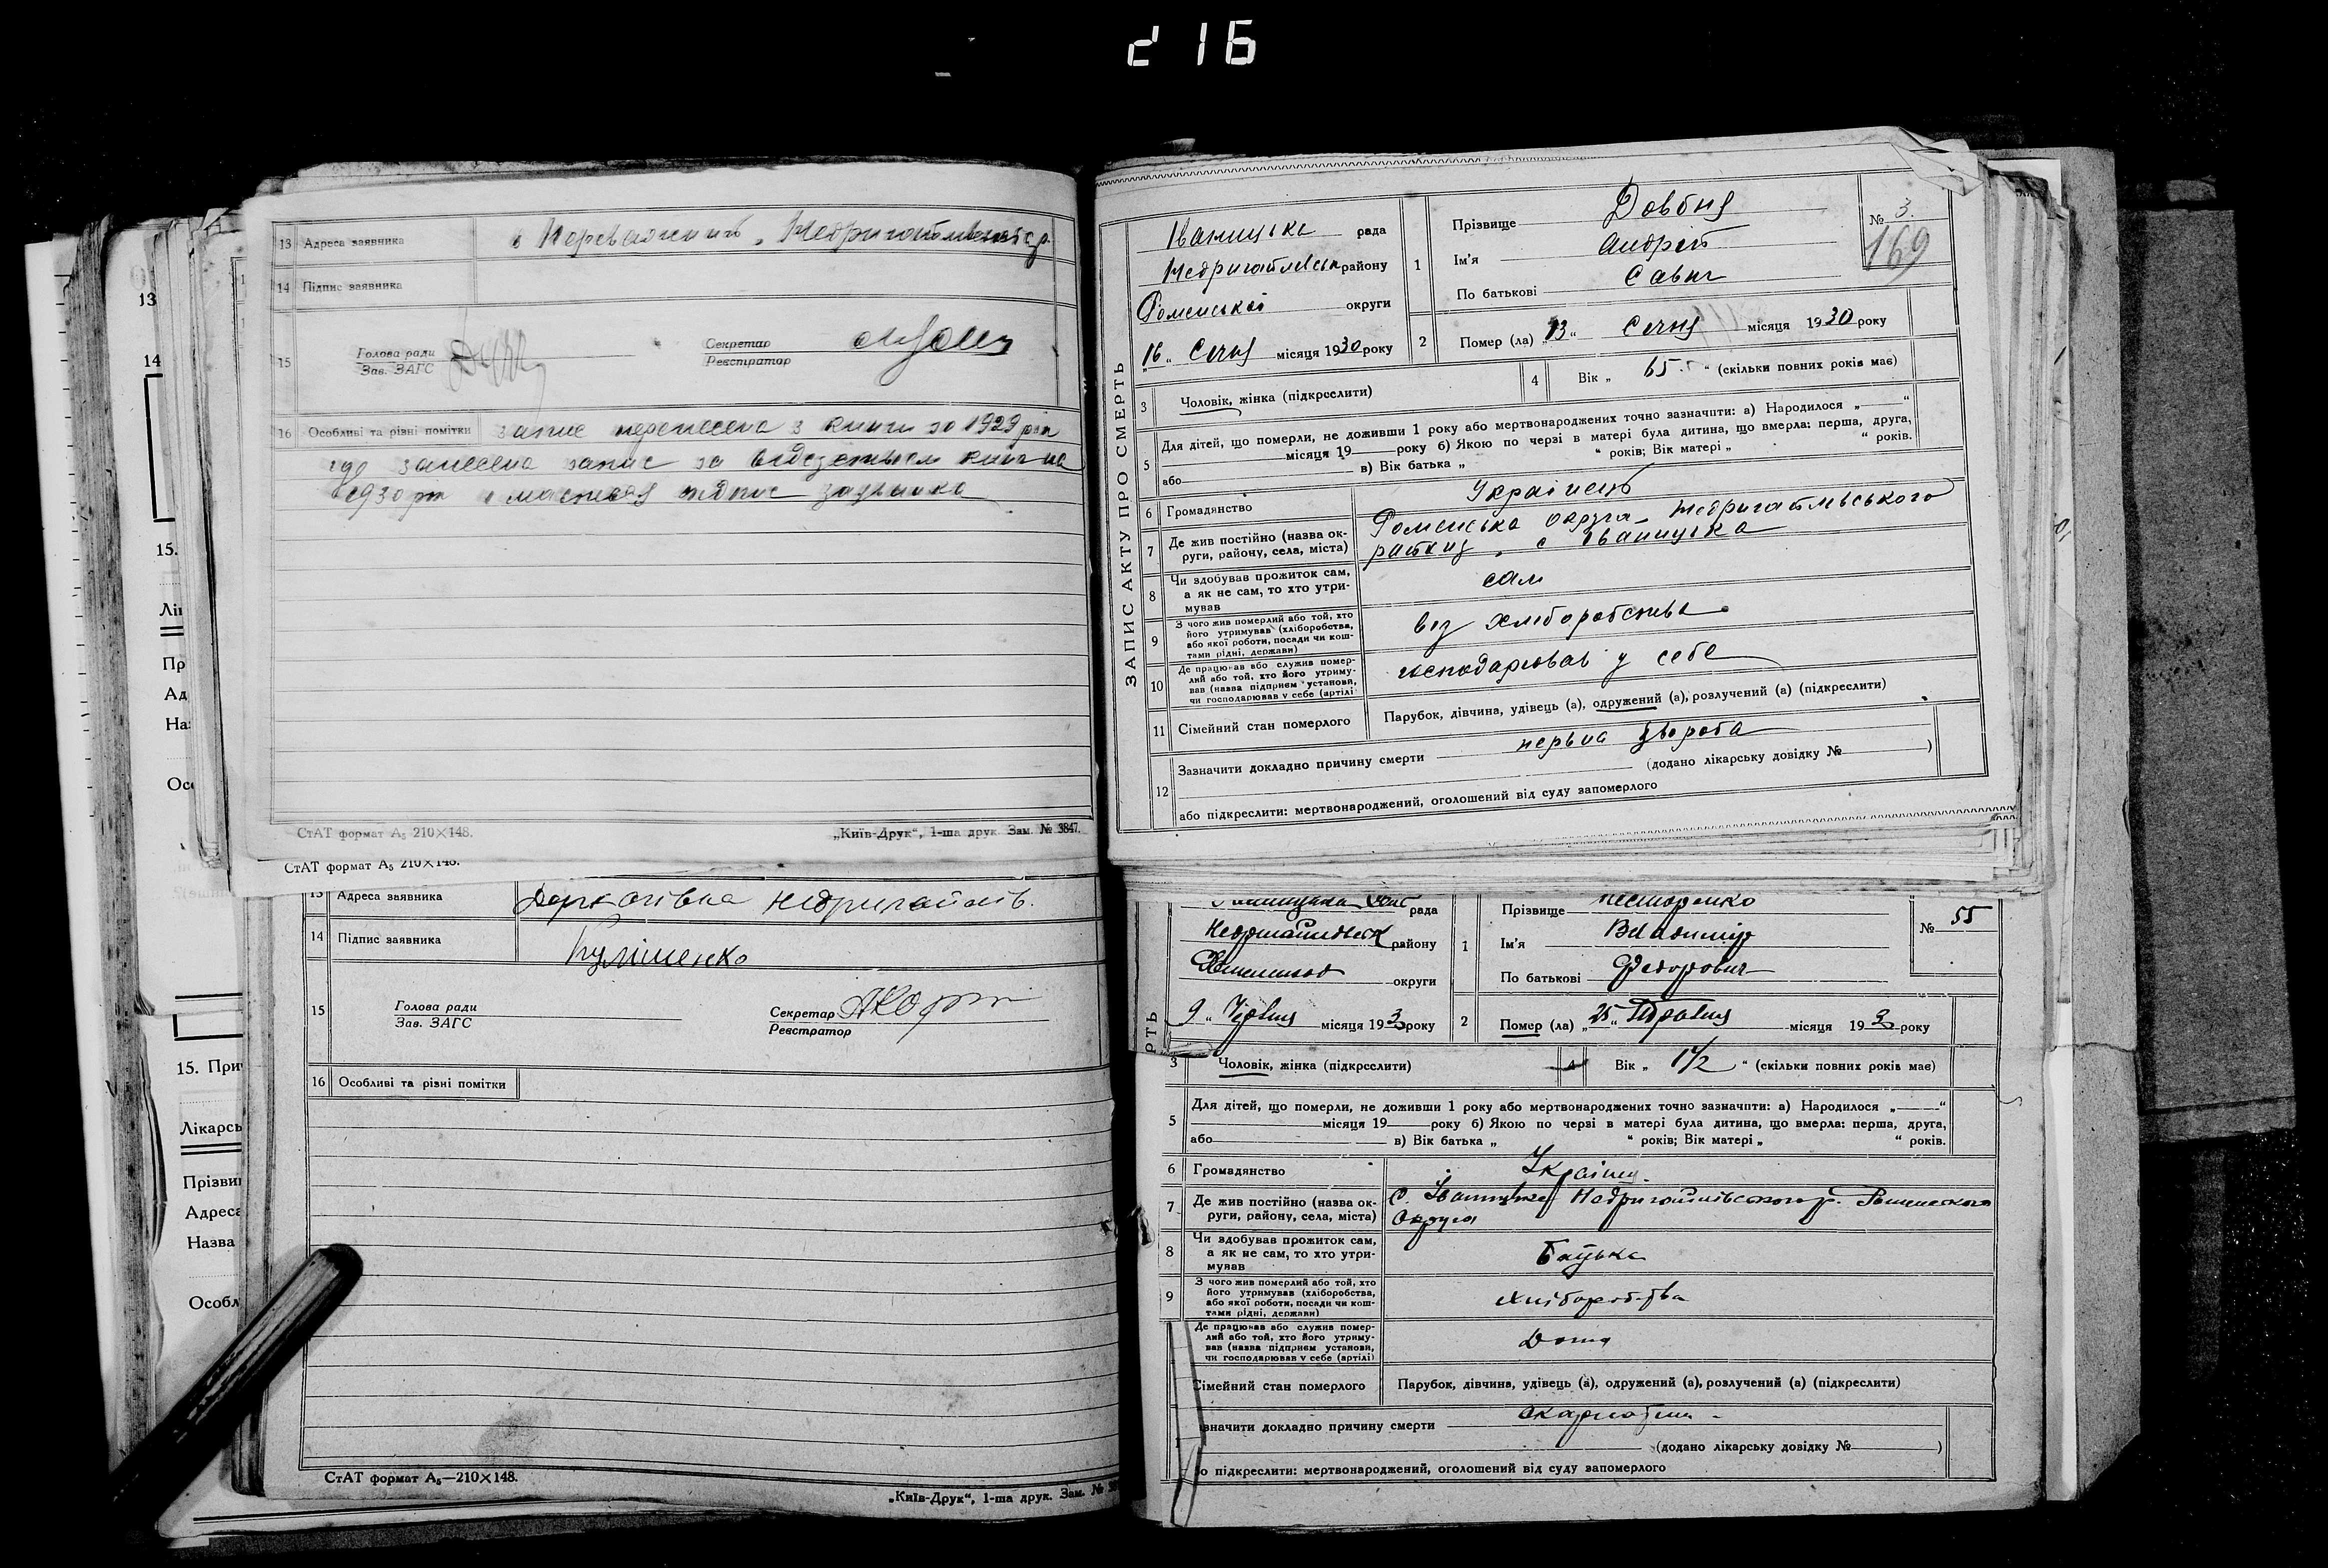 216
13 Адреса заявника
14 Підпис заявника
15 Голова ради Секретар
Зав. ЗАГС Реєстратор
16 Особливі та різні помітки запис перенесена з книги за 1929 рік
занесена запис за відсутністю книг на
1930 рік підпис
СтАТ формат А₅ 210×148. „Київ-Друк“, 1-ша друк. Зам. № 3847.
СтАТ формат А₅ 210×148.
13 Адреса заявника Недригайлів.
14 Підпис заявника Кулішенко
15 Голова ради Секретар
Зав. ЗАГС Реєстратор
16 Особливі та різні помітки
СтАТ формат А₅—210×148.
„Київ-Друк“, 1-ша друк. Зам. №
13
14
15.
Лі
Пр
Ад
На
Ос
15. При
Лікарсь
Прізви
Адреса
Назва
Особл
ЗАПИС АКТУ ПРО СМЕРТЬ
Іваницька рада
Недригайлівськ району
Роменської округи
„16“ Січня місяця 1930 року
1 Прізвище Довбня
Ім’я Андрій
По батькові Савич
№ 3.
169
2 Помер (ла) „13“ Січня місяця 1930 року
3 Чоловік, жінка (підкреслити)
4 Вік „65“ (скільки повних років має)
5 Для дітей, що померли, не доживши 1 року або мертвонароджених точно зазначити: а) Народилося „ “
місяця 19 року б) Якою по черзі в матері була дитина, що вмерла: перша, друга,
або в) Вік батька „ “ років; Вік матері „ “ років.
6 Громадянство Українець
7 Де жив постійно (назва округи, району, села, міста) Роменська округа Недригайлівського
району, с Іваницька
8 Чи здобував прожиток сам,
а як не сам, то хто утри-
мував сам
9 З чого жив померлий або той, хто
його утримував (хліборобства,
або якої роботи, посади чи кош-
тами рідні, держави) від хліборобства
10 Де працював або служив помер-
лий або той, хто його утриму-
вав (назва підприєм установи,
чи господарював у себе (артілі) господарював у себе
11 Сімейний стан померлого Парубок, дівчина, удівець (а), одружений (а), розлучений (а) (підкреслити)
12 Зазначити докладно причину смерти нервна хвороба
(додано лікарську довідку № )
або підкреслити: мертвонароджений, оголошений від суду запомерлого
РТЬ
рада
району
округи
9 „ Червня місяця 193 року
1 Прізвище Нестеренко
Ім’я Владимир
По батькові Федорович
№ 55
2 Помер (ла) „25“ Травня місяця 193 року
3 Чоловік, жінка (підкреслити)
4 Вік „ 1½ “ (скільки повних років має)
5 Для дітей, що померли, не доживши 1 року або мертвонароджених точно зазначити: а) Народилося „ “
місяця 19 року б) Якою по черзі в матері була дитина, що вмерла: перша, друга,
або в) Вік батька „ “ років; Вік матері „ “ років.
6 Громадянство
7 Де жив постійно (назва ок-
руги, району, села, міста) С.
Округа
8 Чи здобував прожиток сам,
а як не сам, то хто утри-
мував Батька
9 З чого жив померлий або той, хто
його утримував (хліборобства,
або якої роботи, посади чи кош-
тами рідні, держави) хліборобства
Де працював або служив помер-
лий або той, хто його утриму-
вав (назва підприєм установи,
чи господарював у себе (артілі) Дома
Сімейний стан померлого Парубок, дівчина, удівець (а), одружений (а), розлучений (а) (підкреслити)
значити докладно причину смерти скарлатина
(додано лікарську довідку № )
о підкреслити: мертвонароджений, оголошений від суду запомерлого